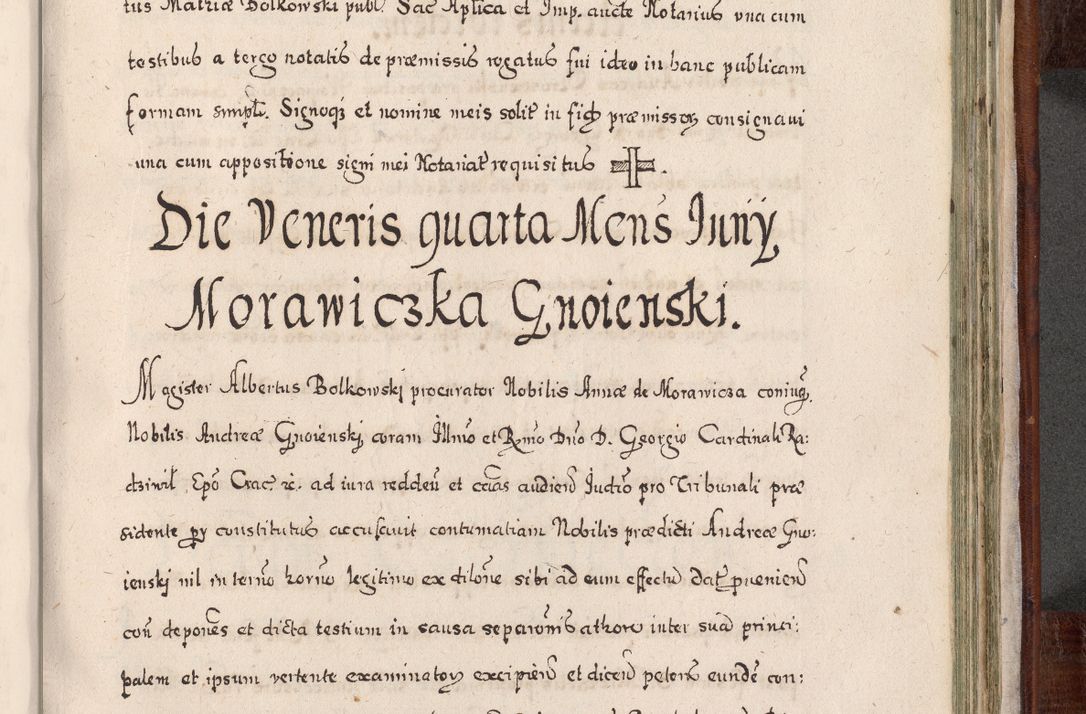 tus Matriæ Bolkowski publ. Sac Aplica et Imp. aucte Notarius vna cum
testibus a tergo notatis de præmissis rogatus fui ideo in hanc publicam
formam Signoq; et nomine meis solit in præmissor consignavi
una cum appositione signi mei Notariat requisitus
Die Veneris quarta Mens Iunÿ
Morawiczka Gnoienski.
Magister Albertus Bolkowski procurator Nobilis Annæ de Morawicza coniug.
Nobilis Andreæ Gnoienskj coram Illmo et Rmo Dno D. Georgio Cardinali Ra:
dziwił Epo Crac. etc. ad iura reddeñ et causas audień Iudtio pro Tribunali præ
sidente py constitutus accusavit contumatiam Nobilis prædicti Andreæ Gno:
ienskj nil in termo legitimo ex dilone sibi ad eum effectu dat pueniend
con depones et dicta testium in causa separonis athoro inter sua princi:
palem et ipsum vertente examinator excipiend et dicend petens eunde con: